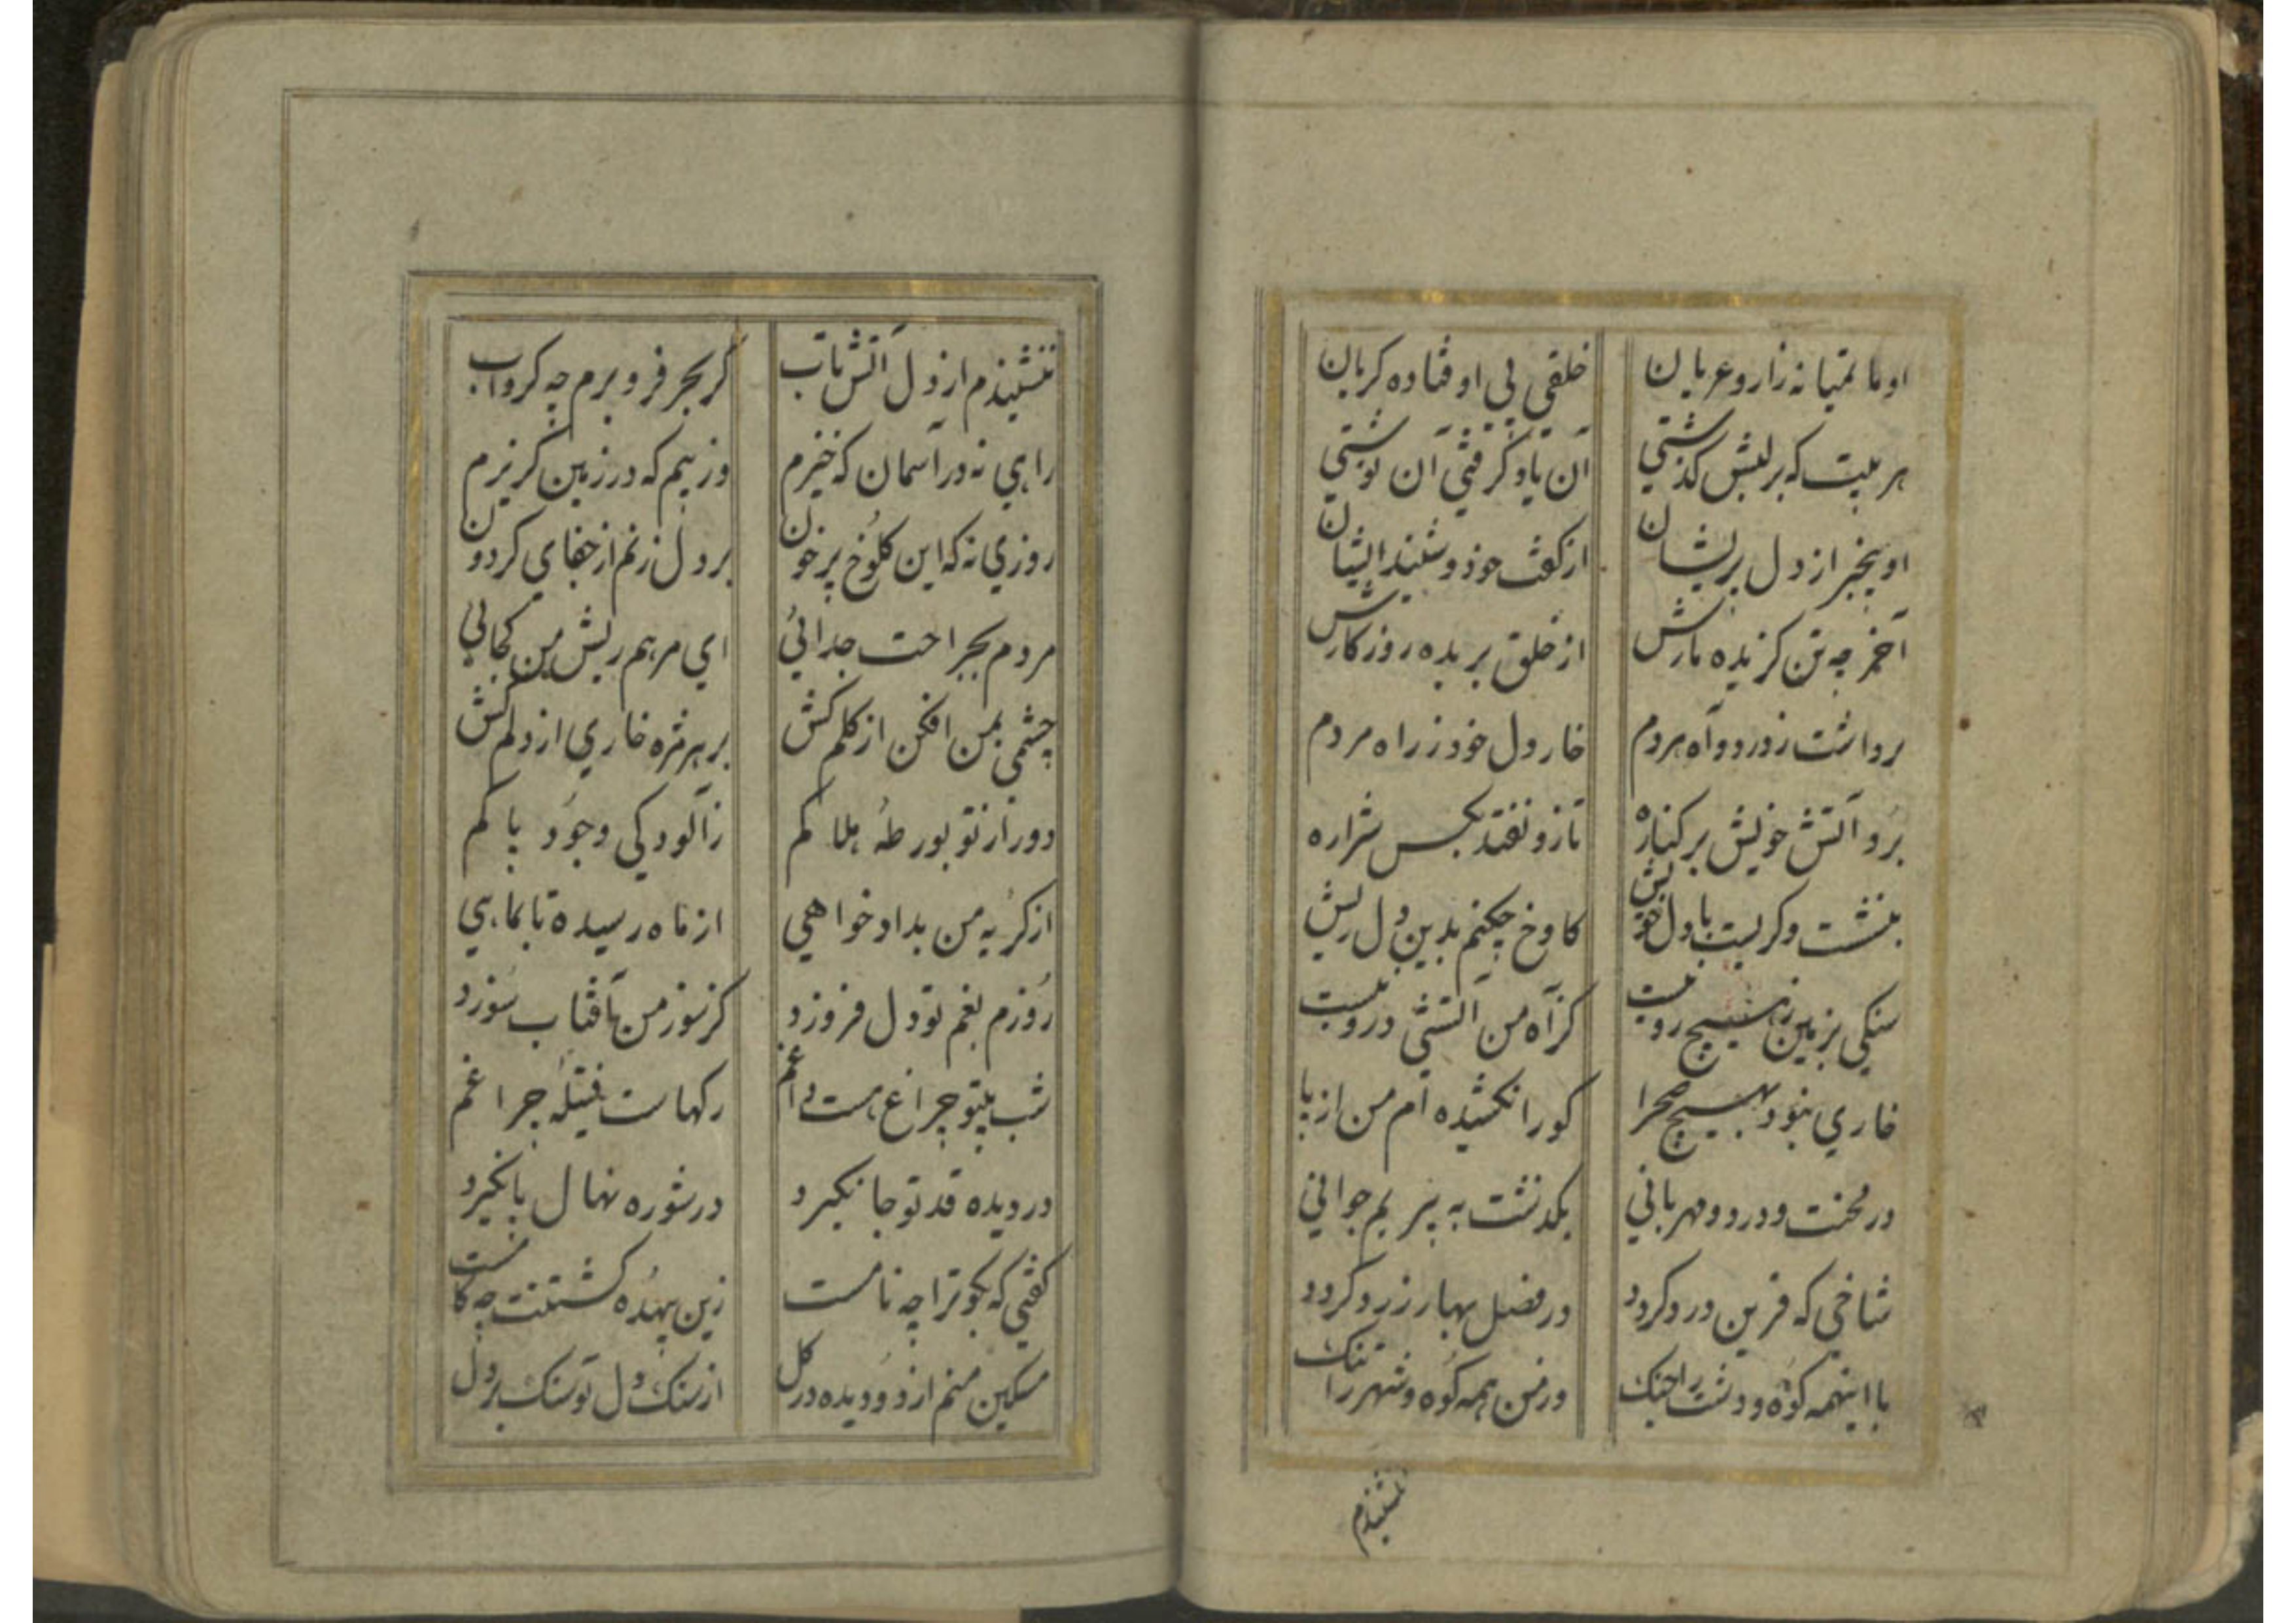 او ماتمیانه زار و عریان
خلقی پی او فتاده کریان
هر بیت که بر لبش کذشتی
آن یاد کرفتی آن نوشتی
او بیخبر از دل پریشان
از کفت خود و شنید ایشان
آخر چو تن کزیده مارش
از خلق بریده روزکارش
برداشت ز درد و آه مردم
خار دل خود ز راه مردم
برد آتش خویش بر کناره
تا زو نفتد بکس شراره
بنشست و کریست با دل خویش
کاوخ چکنم بدین دل ریش
سنکی بزمین هیچ رو نیست
کز آه من آتشی درو نیست
خاری نبود بهیچ صحرا
کورا نکشیده ام من از پا
در محنت و درد و مهربانی
بکذشت به پیریم جوانی
شاخی که قرین درد کردد
در فصل بهار زرد کردد
با اینهمه کوه و دشت را جنک
وز من همه کوه و شهر را تنک
ننشیندم
ننشیندم از دل آتش ناب
کر بحر فرو برم چه کرداب
راهی نه در آسمان که خیزم
وز بیم که در زمین کریزم
روزی نه که این کلوخ پر خون
بر دل زنم از جفای کردون
مردم بجراحت جدائی
ای مرهم ریش من کجائی
چشمی بمن افکن از کلم کش
بر هر مژه خاری از دلم کش
دور از تو بورطهٔ هلاکم
ز آلودکی وجود پاکم
از کریه من بداد خواهی
از ماه رسیده تا بماهی
روزم بغم تو دل فروزد
کز سوز من آفتاب سوزد
شب بیتو چراغ هست بی اغم
رکهاست فتیلهٔ چراغم
در دیده قد تو جا نکیرد
در شوره نهال پا نکیرد
کفتی که بکو ترا چه نامست
زین بیهده کشتنت چه کامست
مسکین منم از دو دیده در کل
از سنک دل تو سنک بر دل